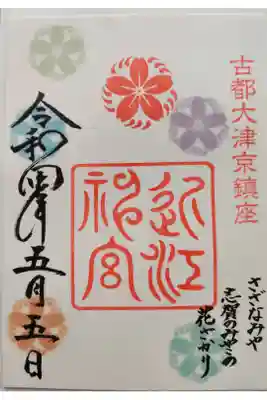 古都大津京鎮座
さざなみや
志賀のみやこの
花ざかり
近江
神宮
令和四年五月五日